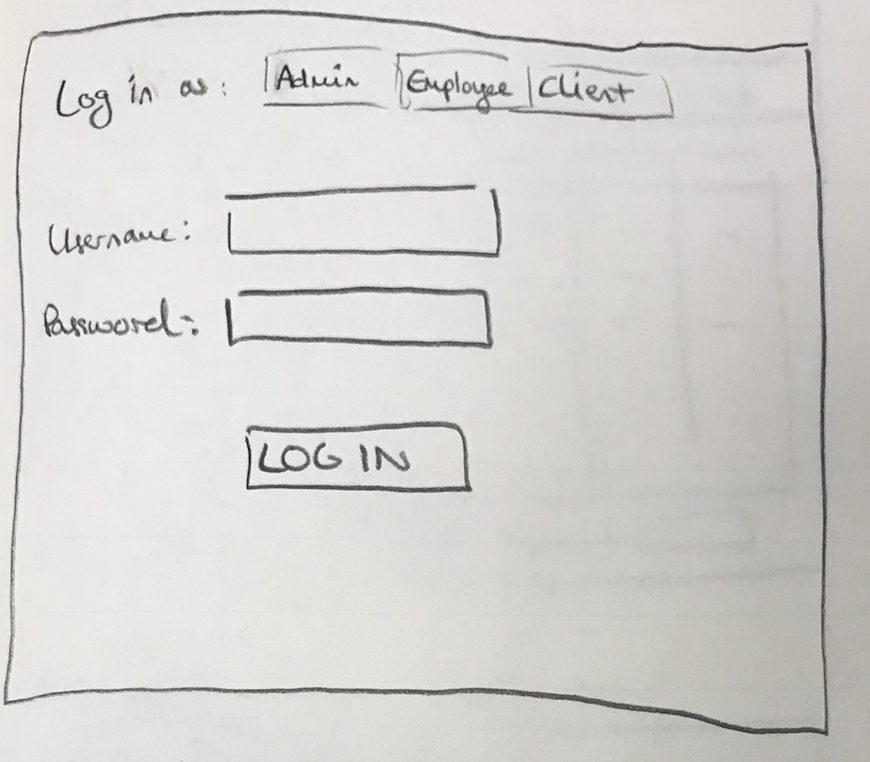 Log in as: Admin Employee Client
Username:
Password:
LOG IN